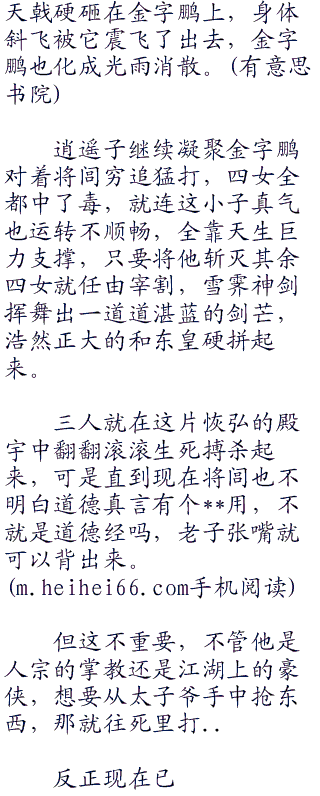 天戟硬砸在金字鹏上，身体
斜飞被它震飞了出去，金字
鹏也化成光雨消散。(有意思
书院)
逍遥子继续凝聚金字鹏
对着将闾穷追猛打，四女全
都中了毒，就连这小子真气
也运转不顺畅，全靠天生巨
力支撑，只要将他斩灭其余
四女就任由宰割，雪霁神剑
挥舞出一道道湛蓝的剑芒，
浩然正大的和东皇硬拼起
来。
三人就在这片恢弘的殿
宇中翻翻滚滚生死搏杀起
来，可是直到现在将闾也不
明白道德真言有个**用，不
就是道德经吗，老子张嘴就
可以背出来。
(m.heihei66.com手机阅读)
但这不重要，不管他是
人宗的掌教还是江湖上的豪
侠，想要从太子爷手中抢东
西，那就往死里打..
反正现在已